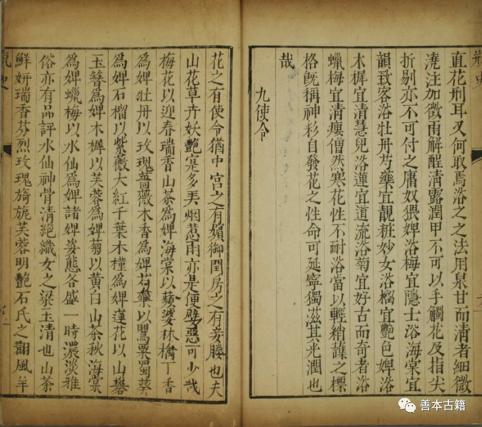 直花刑耳又何取焉浴之之法用泉甘而清者細微
澆注如微雨解酲清露潤甲不可以手觸花及指尖
折剔亦不可付之庸奴猥婢浴梅宜隱士浴海棠宜
韻致客浴牡丹芍藥宜靚粧妙女浴榴宜艷色婢浴
木樨宜清慧兒浴蓮宜道流浴菊宜好古而奇者浴
蠟梅宜清瘦僧然寒花性不耐浴當以輕綃護之標
格既稱神彩自發花之性命可延寧獨滋其光潤也
哉
九使令
花之有使令猶中宮之有嬪御閨房之有妾媵也夫
山花草卉妖艷寔多弄烟惹雨亦是便嬖惡可少哉
梅花以迎春瑞香山茶爲婢海棠以蘋婆林檎丁香
爲婢牡丹以玫瑰薔薇木香爲婢芍藥以罌粟蜀葵
爲婢石榴以紫薇大紅千葉木槿爲婢蓮花以山礬
玉簪爲婢木樨以芙蓉爲婢菊以黃白山茶秋海棠
爲婢蠟梅以水仙爲婢諸婢姿態各盛一時濃淡雅
俗亦有品評水仙神骨清絕織女之梁玉清也山茶
鮮妍瑞香芬烈玫瑰旖旎芙蓉明艷石氏之翾風羊
善本古籍